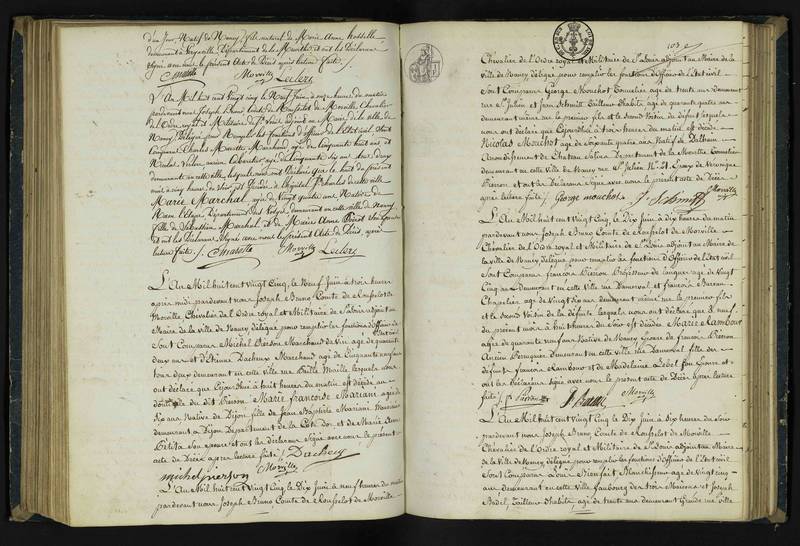 d'un jour, Natif de Nancy, fils naturel de Marie Anne
demeurant à Département de la Meurthe et ont les Déclarans
signé avec nous le présent Acte de Décès après lecture faite ./.
Marotte Morville Leclerc
L'An Mil huit cent vingt cinq le Neuf Juin, à onze heures du matin
pardevant nous Joseph Bruno Comte de Rousselot de Morville, Chevalier
de l'Ordre royal et Militaire de St Louis adjoint au Maire de la ville de
Nancy délégué pour remplir les fonctions d'officier de l'Etat civil Sont
Comparus Charles Marotte Marchand, agé de cinquante huit ans et
Nicolas agé de cinquante six ans tous deux
demeurant en cette ville, lesquels nous ont déclaré que le huit du présent
mois à cinq heures du Soir est Décédée à l'hôpital St Charles de cette ville
Marie Marchal, agée de vingt quatre ans Native de
Département des Vosges, demeurant en cette ville de Nancy
fille de Sébastien Marchal, et de Marie Anne
et ont les Déclarans signé avec nous le présent Acte de Décès, après
lecture faite ./. Marotte Morville Leclerc
L'An Mil huit cent vingt Cinq, le Neuf Juin à trois heures
après midi pardevant nous Joseph Bruno Comte de Rousselot de
Morville, Chevalier de l'Ordre royal et Militaire de St Louis adjoint au
Maire de la ville de Nancy délégué pour remplir les fonctions d'officier de
l'Etat civil
Sont Comparus Michel Pierson Marchand de Vin agé de quarante
deux ans et d'Etienne Dacheux Marchand agé de Cinquante ans
tous deux demeurant en cette ville rue lesquels nous
ont déclaré que Cejourd'hui à huit heures du matin est décédée au
domicile du dit Pierson Marie françoise Mariani agée de
dix ans Native de Dijon fille de Jean Baptiste Mariani
demeurant à Dijon Département de la Côte d'or et de Marie Anne
son épouse et ont les déclarans signé avec nous le présent
acte de Décès après lecture faite ./. Dacheux
michel pierson Morville
L'An Mil huit cent Vingt Cinq, le Dix Juin à neuf heures du matin
pardevant nous Joseph Bruno Comte de Rousselot de Morville
103
Chevalier de l'Ordre royal et Militaire de St Louis adjoint au Maire de la
ville de Nancy délégué pour remplir les fonctions d'officier de l'Etat civil
Sont Comparus George Mouchot Tonnelier agé de trente ans demeurant
rue St Julien et Jean Schmitt Tailleur d'habits agé de quarante quatre ans
demeurant même rue le premier fils et le second Voisin du défunt lesquels
nous ont déclaré que Cejourd'hui à trois heures du matin est décédé
Nicolas Mouchot agé de Soixante quatre ans Natif de Dalhain
Arrondissement de Chateau Salins Département de la Meurthe Tonnelier
demeurant en cette Ville de Nancy rue St Julien No 21 Epoux de Véronique
Pierron et ont les déclarans signé avec nous le présent acte de Décès
après lecture faite ./. George mouchot J. Schmitt Morville
L'An Mil huit cent Vingt Cinq le Dix Juin à dix heures du matin
pardevant nous Joseph Bruno Comte de Rousselot de Morville
Chevalier de l'Ordre royal et Militaire de St Louis adjoint au Maire de
la ville de Nancy délégué pour remplir les fonctions d'officier de l'Etat civil
Sont Comparus françois Pierson Professeur de langues agé de Vingt
Cinq ans Demeurant en cette Ville rue et françois
Chapelier agé de Vingt six ans demeurant même rue le premier fils
et le second Voisin de la défunte lesquels nous ont déclaré que
du présent mois à huit heures du Soir est décédée Marie Rambour
agée de quarante neuf ans Native de Nancy épouse de françois Pierson
Ancien Perruquier demeurant en cette Ville rue fille de
défunts françois Rambour et de Madelaine Lebel son épouse et
ont les déclarans signé avec nous le présent acte de Décès après lecture
faite ./. Pierson Morville
L'An Mil huit cent Vingt Cinq le Dix Juin à dix heures du Soir
pardevant nous Joseph Bruno Comte de Rousselot de Morville
Chevalier de l'Ordre royal et Militaire de St Louis adjoint au Maire
de la Ville de Nancy délégué pour remplir les fonctions d'officier de l'Etat civil
Sont Comparus Louis Bienfait Blanchisseur agé de Vingt cinq
ans demeurant en cette Ville faubourg des trois Maisons et Joseph
Badel, Tailleur d'habits, agé de trente ans demeurant Grande rue Ville